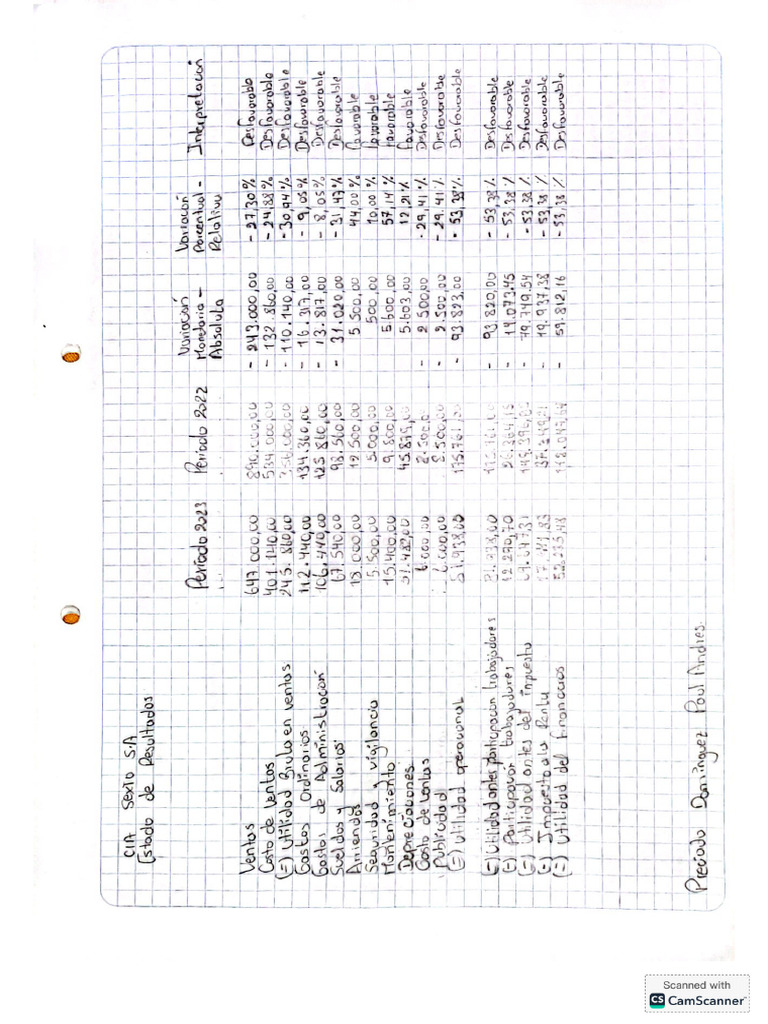 CIA SEXTO S.A
Estado de Resultados
Período 2023 Período 2022 Variación Monetaria - Absoluta Variación Porcentual - Relativa Interpretación
Ventas 647.000,00 890.000,00 - 243.000,00 - 27,30 % Desfavorable
Costo de Ventas 401.140,00 534.000,00 - 132.860,00 - 24,88 % Desfavorable
(=) Utilidad Bruta en ventas 245.860,00 356.000,00 - 110.140,00 - 30,94 % Desfavorable
Gastos Ordinarios 112.440,00 134.360,00 - 16.317,00 - 9,05 % Desfavorable
Gastos de Administración 106.440,00 125.860,00 - 13.817,00 - 8,05 % Desfavorable
Sueldos y Salarios 67.540,00 98.560,00 - 31.020,00 - 31,47 % Desfavorable
Arriendos 18.000,00 12.500,00 5.500,00 44,00 % favorable
Seguridad y vigilancia 5.500,00 5.000,00 500,00 10,00 % favorable
Mantenimiento 15.400,00 9.800,00 5.600,00 57,14 % favorable
Depreciaciones 5.603,00 12,21 % favorable
Gasto de ventas 6.000,00 8.500,0 - 2.500,00 - 29,41 % Desfavorable
Publicidad 6.000,00 8.500,00 - 2.500,00 - 29,41 % Desfavorable
(=) Utilidad operacional 175.761,00 - 93.823,00 - 53,38 % Desfavorable
(=) Utilidad antes participación trabajadores - 93.820,00 - 53,38 % Desfavorable
(-) Participación trabajadores 12.290,70 26.364,15 - 14.073,45 - 53,38 % Desfavorable
(=) Utilidad antes del impuesto - 79.749,54 - 53,38 % Desfavorable
(-) Impuesto a la Renta - 19.937,38 - 53,38 % Desfavorable
(=) Utilidad del - 59.812,16 - 53,38 % Desfavorable
Preciado Dominguez Paul Andres.
Scanned with
CS CamScanner